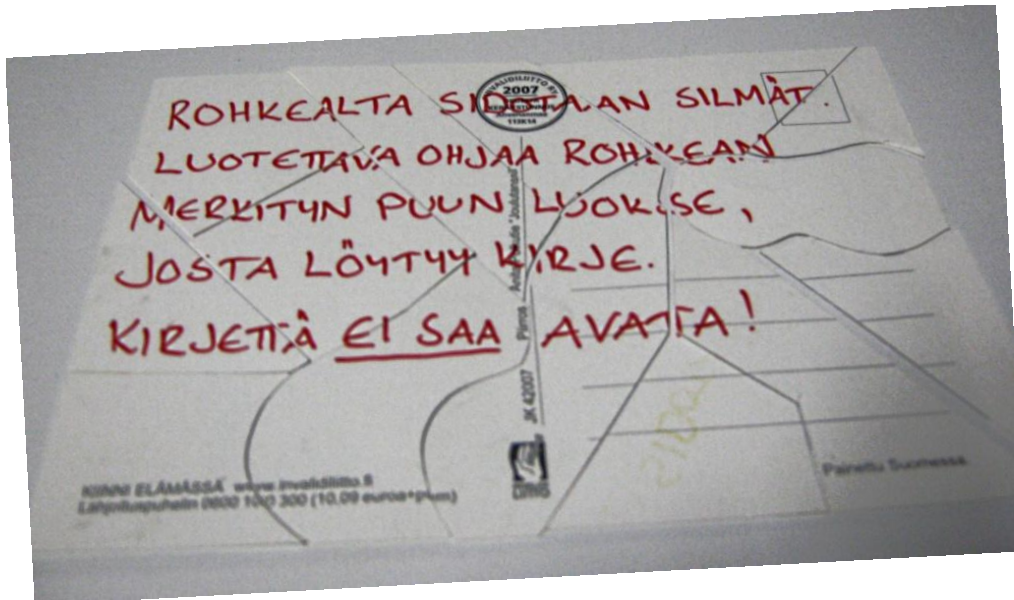 ROHKEALTA SIDOTAAN SILMÄT.
LUOTETTAVA OHJAA ROHKEAN
MERKITYN PUUN LUOKSE,
JOSTA LÖYTYY KIRJE.
KIRJETTÄ EI SAA AVATA!
INVALIDILIITTO RY
2007
JK 42007 Piirros
KIINNI ELÄMÄSSÄ www.invalidiliitto.fi
Lahjoituspuhelin 0600 100 300 (10,09 euroa+pvm)
Painettu Suomessa